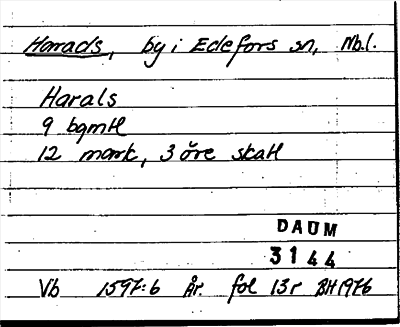 Harads, by i Edefors sn, Nb.l.
Harals
9 bgmtl
12 mark, 3 öre skatt
DAUM
3144
Vb 1597:6 År. fol 13r BH 1976